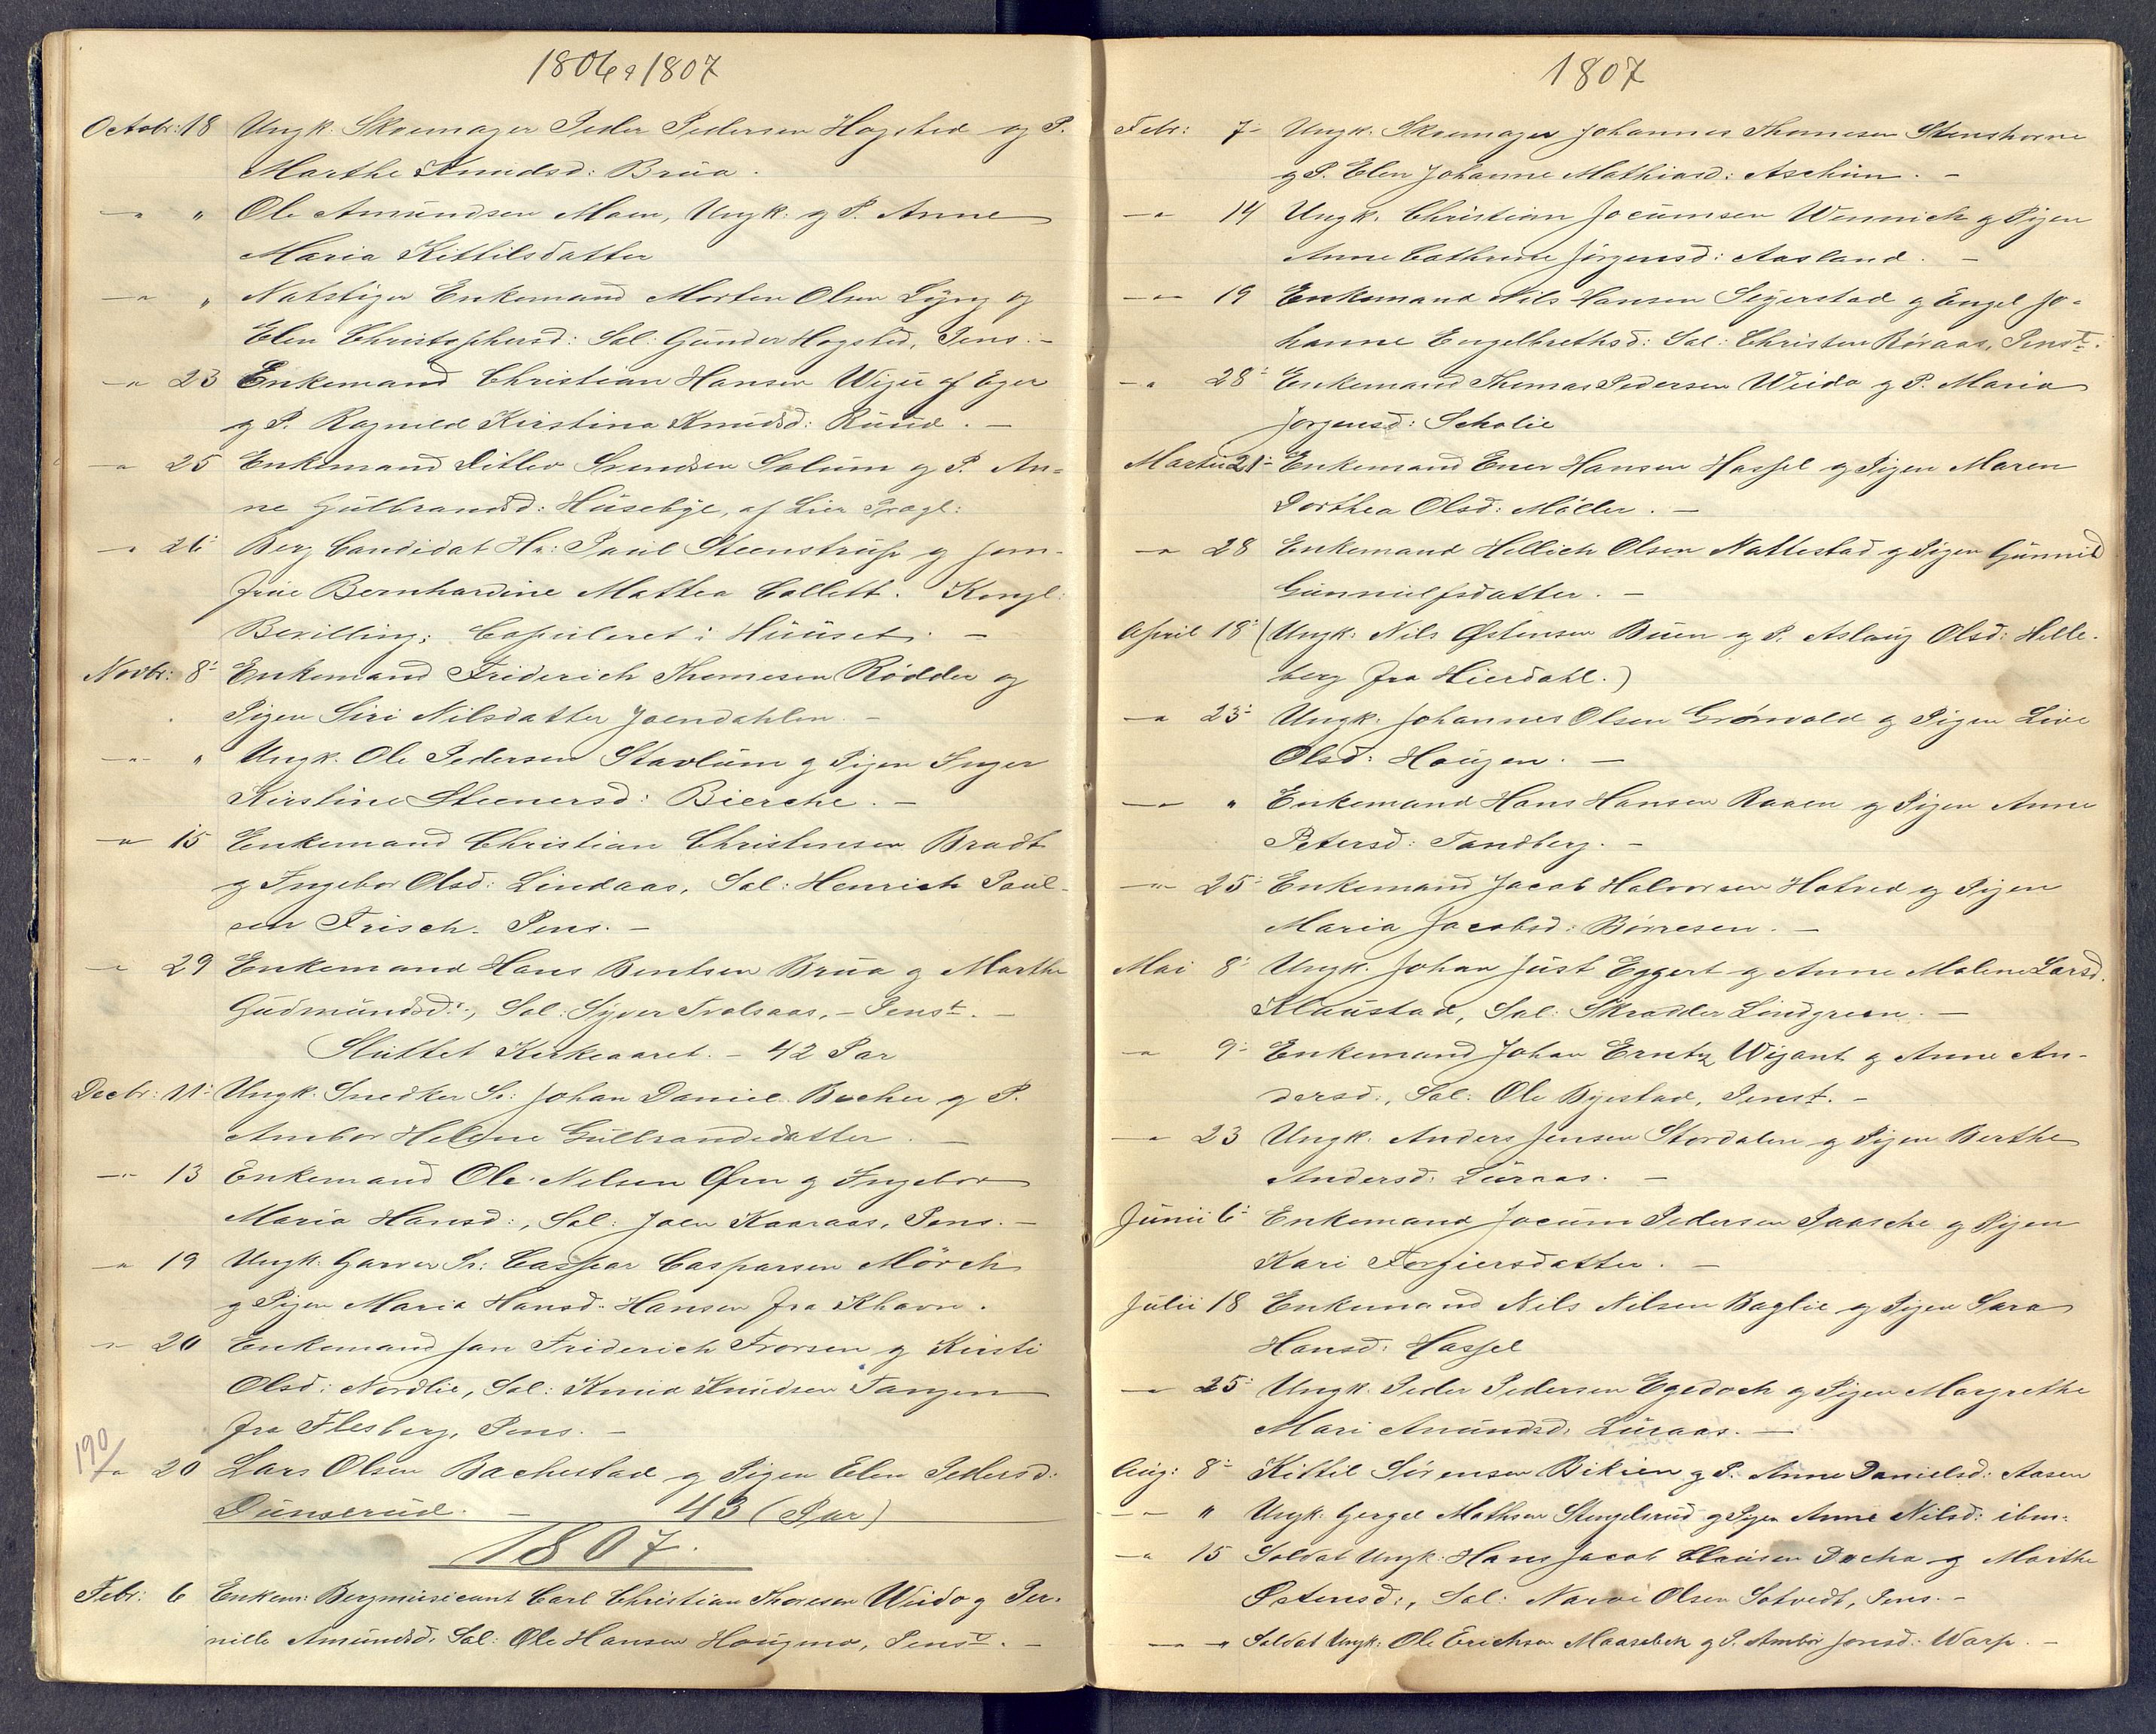 1806 & 1807
Octobr: 18 Ungk. Skoemager Peder Pedersen Hogsted og P.
Marthe Knudsd: Brua.
—"— " Ole Amundsen Moen, Ungk: og P. Anne
Maria Kittilsdatter
—"— " Natstiger Enkemand Morten Olsen Lÿng og
Elen Christophersd: Sal: Gunder Hogsted, Pens: –
—"— 23 Enkemand Christian Hansen Wiger af Eger
og P. Ragnild Kirstina Knudsd: Ruud. —
—"— 25 Enkemand Ditlev Svendsen Solum og P. An=
ne Gulbrandsd: Husebÿe, af Lier Prægl:
—"— 26 Berg Candidat Hr: Paul Steenstrup og Jom-
frue Bernhardine Mathea Collett. Kongl:
Bevilling: Copuleret i Huuset. —
Novbr: 8 Enkemand Friderich Thomesen Rødder og
Pigen Siri Nilsdatter Joendahlen. –
—"— " Ungk. Ole Pedersen Stavlum og Pigen Inger
Kirstine Steenersd: Bierche. —
—"— 15 Enkemand Christian Christensen Bradt
og Ingebor Olsd: Lindaas, Sal: Henrich Paul-
sen Frisch. Pens. –
—"— 29 Enkemand Hans Bentsen Brua og Marthe
Gudmundsd:, Sal: Sÿver Tvolsaas, – Penst. –
Sluttet Kirkeaaret. – 42 Par
Decbr: 11 Ungk. Snedker Sr: Johan Daniel Becher og P.
Ambor Helene Gulbrandsdatter. —
—"— 13 Enkemand Ole Nelsen Ørn og Ingebor
Maria Hansd:, Sal: Joen Kaaraas, Pens. –
—"— 19 Ungk. Garver Sr: Casper Caspersen Mörch
og Pigen Maria Hansd. Hansen fra Khavn.
—"— 20 Enkemand Jan Friderich Frorsen og Kirsti
Olsd: Nordlie, Sal: Knud Knudsen Tangen
fra Flesberg, Pens. –
190/
—"— 20 Lars Olsen Bachestad og Pigen Elen Pedersd:
Dunserud. — 43 (Par)
1807.
Febr: 6 Enkem: Bergmusicant Carl Christian Thoresen Weido og Per-
nille Amundsd. Sal: Ole Hansen Hougmo, Penst. –
1807
Febr: 7 Ungk. Skoemager Johannes Thomesen Stenshorne
og P. Elen Johanne Mathiasd: Aschim. –
—"— 14 Ungk. Christian Jocumsen Wennich og Pigen
Anne Cathrine Jörgensd: Aasland. –
—"— 19 Enkemand Nils Hansen Seyerstad og Engel Jo-
hanne Engelbrethsd: Sal: Christen Røraas, Penst.
—"— 28 Enkemand Thomas Pedersen Weido og P. Maria
Jorgensd: Scholie
Martii 21 Enkemand Ener Hansen Hassel og Pigen Maren
Dorthea Olsd: Möller. –
—"— 28 Enkemand Hellich Olsen Nattestad og Pigen Gunnild
Gunnulfsdatter. –
April 18 (Ungk: Nils Østensen Buen og P. Aslaug Olsd: Helle-
berg fra Hierdahl.)
—"— 23 Ungk. Johannes Olsen Grønvold og Pigen Live
Olsd: Hougen. —
—"— " Enkemand Hans Hansen Raaen og Pigen Anne
Petersd: Tandberg. –
—"— 25 Enkemand Jacob Halvorsen Hotved og Pigen
Maria Jacobsd: Børresen. –
Mai 8 Ungk. Johan Just Eggert og Anne Malene Larsd.
Klaustad, Sal: Skrædder Lindgreen. —
—"— 9 Enkemand Johan Erntz Wigant og Anne An-
dersd:, Sal: Ole Bÿestad, Penst. –
—"— 23 Ungk. Anders Jensen Stordalen og Pigen Berthe
Andersd: Luraas. –
Junii 6 Enkemand Jocum Pedersen Paasche og Pigen
Kari Torgiersdatter. –
Julii 18 Enkemand Nils Nilsen Baglie og Pigen Sara
Hansd: Hassel
—"— 25 Ungk. Peder Pedersen Egedoch og Pigen Margrethe
Mari Amundsd. Luraas. —
Aug: 8 Kittil Sørensen Bikien og P. Anne Danielsd: Aasen
—"— " Ungk. Gergel Mathsen Stengelsrud og Pigen Anne Nilsd: ibm:
—"— 15 Soldat Ungk: Hans Jacob Clausen Docka og Marthe
Østensd:, Sal: Narve Olsen Sotvedt, Pens. –
—"— " Soldat Ungk: Ole Erichsen Maasebek og P. Ambor Jonsd: Warp. –